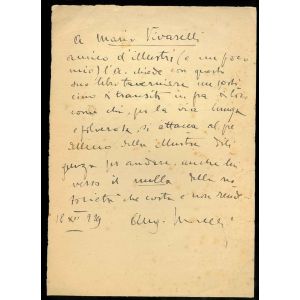 A Mario Vivarelli
amico d'illustri (e un poco
mio) l'A. chiede con questo
suo libro taverniere un posti
cino di transito in fra i libri,
come chi, per la via lunga
e polverosa, si attacca al pre
dellino della illustre dili
genza per andare, anche lui
verso il nulla della no
torietà che costa e non rende
18 XII 939